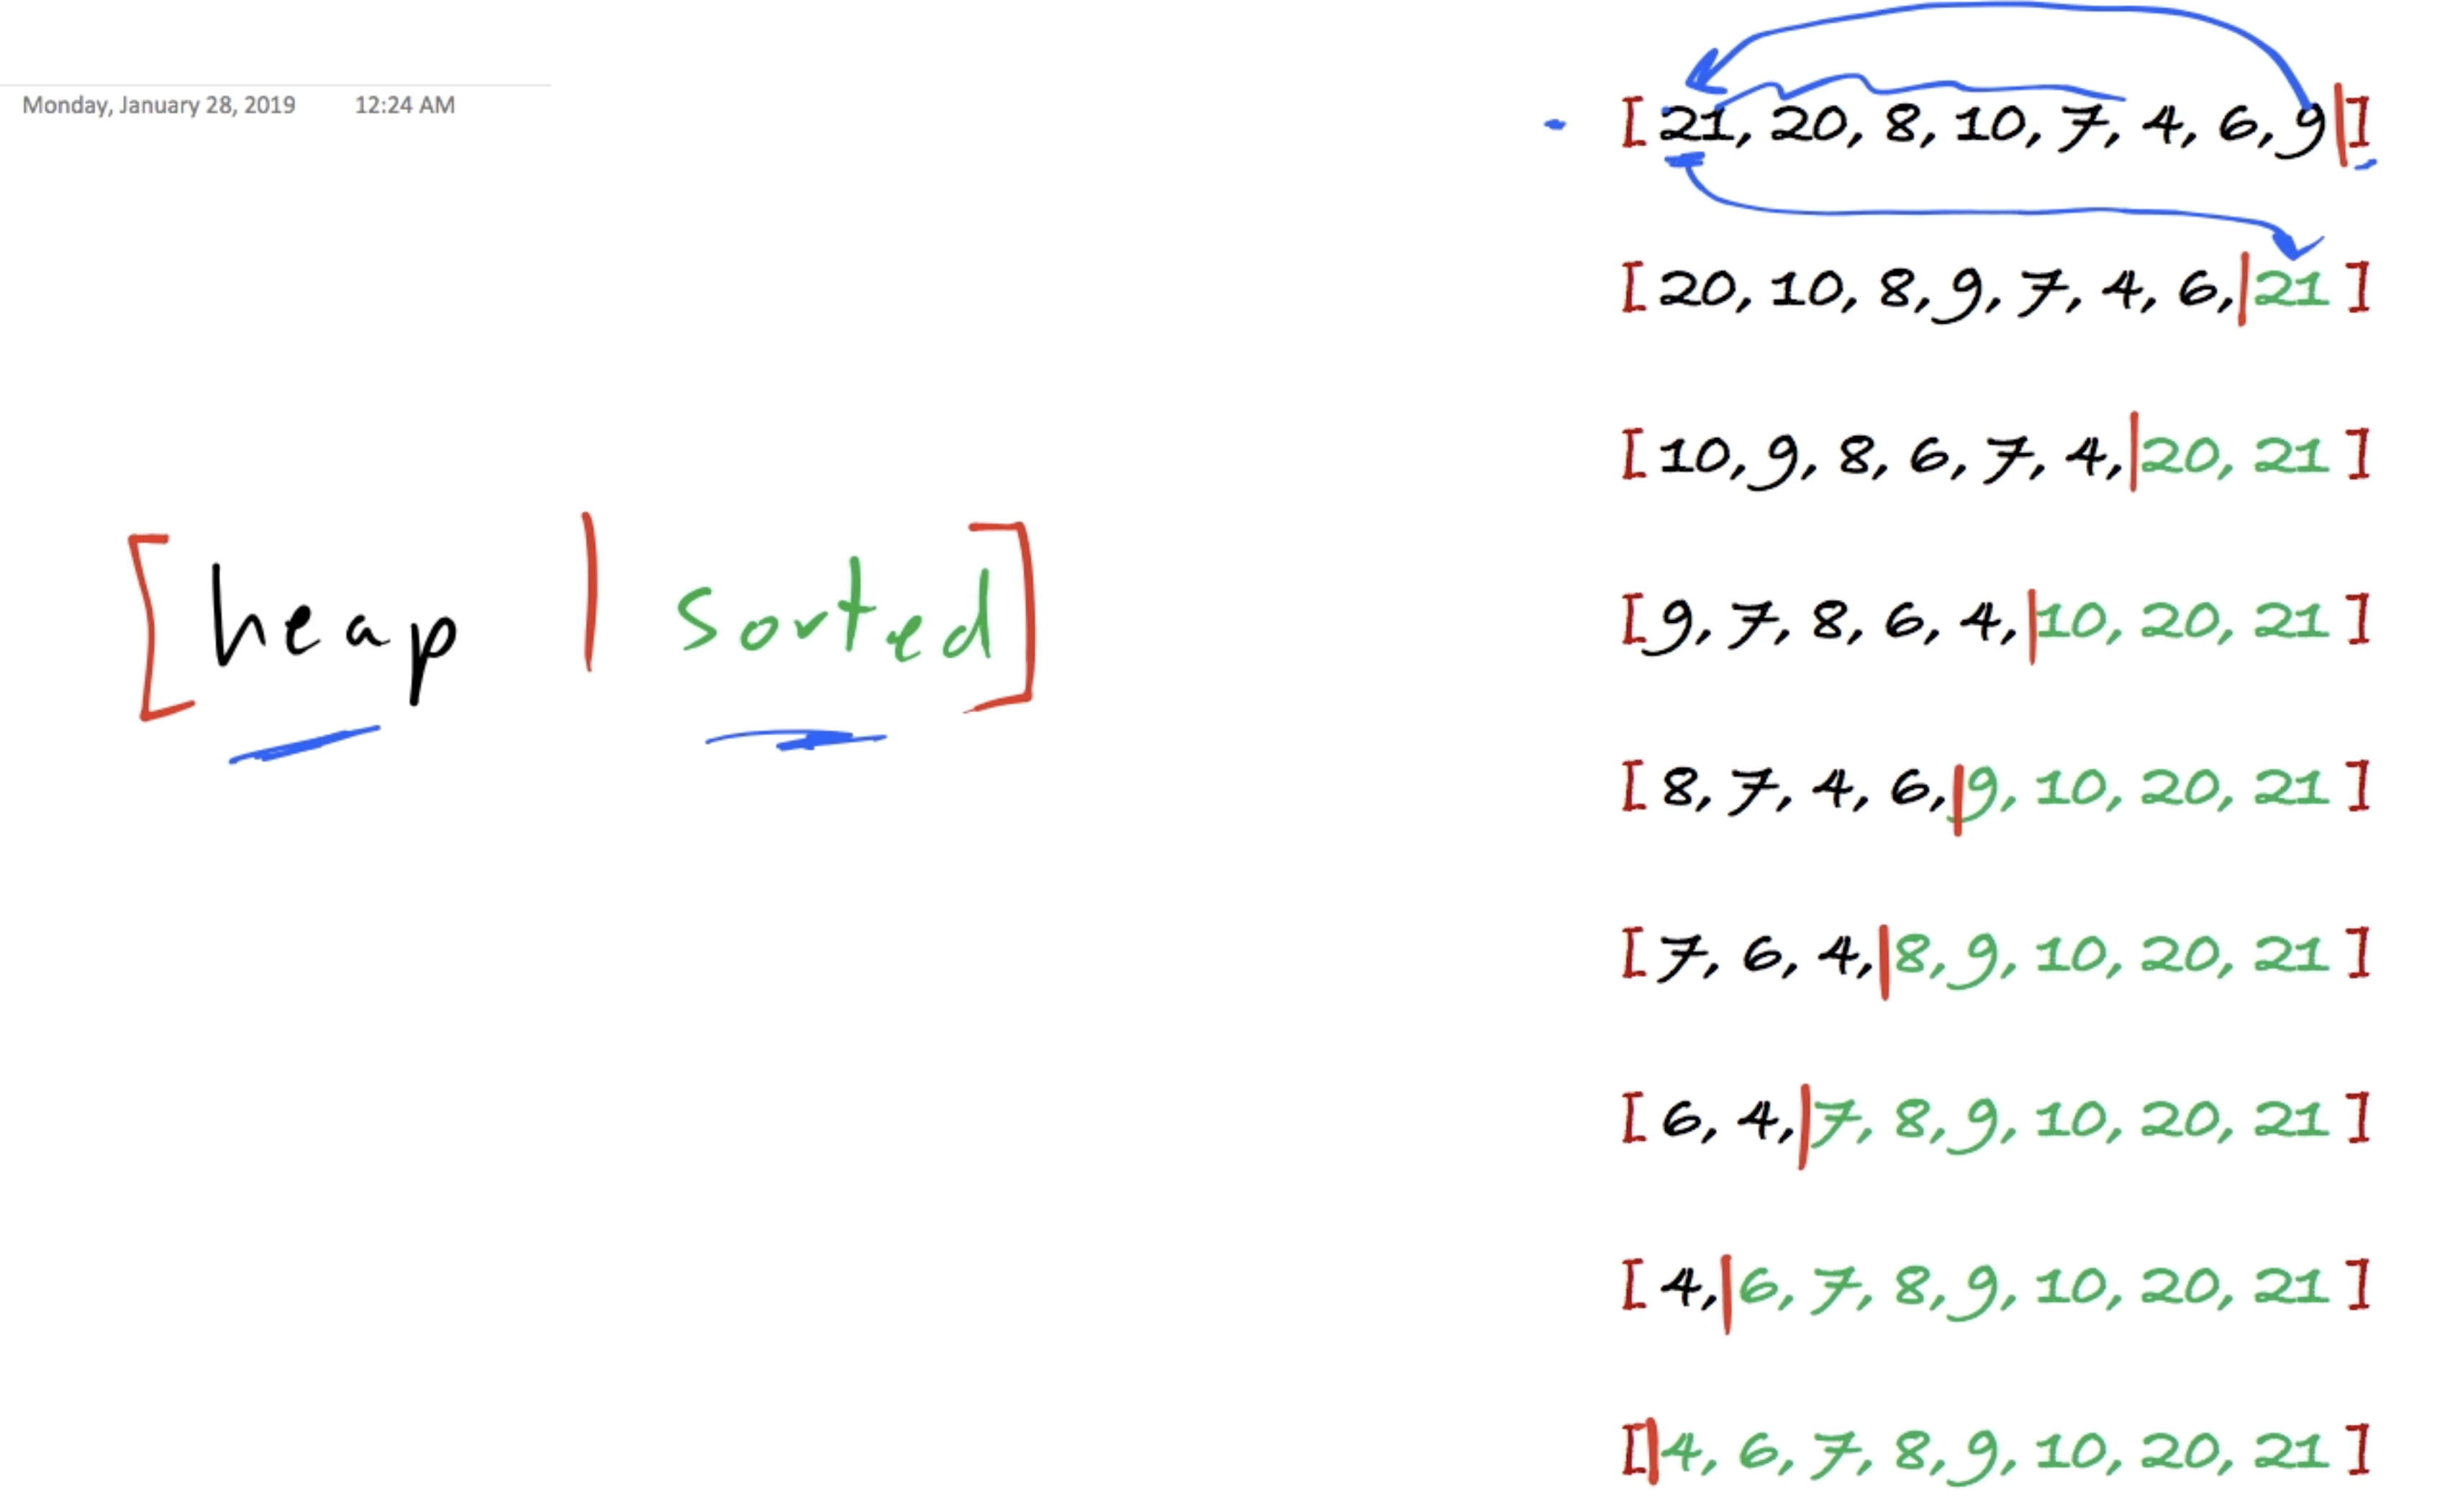 Monday, January 28, 2019 12:24 AM
[heap | sorted]
[21, 20, 8, 10, 7, 4, 6, 9|]
[20, 10, 8, 9, 7, 4, 6,|21]
[10, 9, 8, 6, 7, 4,|20, 21]
[9, 7, 8, 6, 4,|10, 20, 21]
[8, 7, 4, 6,|9, 10, 20, 21]
[7, 6, 4,|8, 9, 10, 20, 21]
[6, 4,|7, 8, 9, 10, 20, 21]
[4,|6, 7, 8, 9, 10, 20, 21]
[|4, 6, 7, 8, 9, 10, 20, 21]